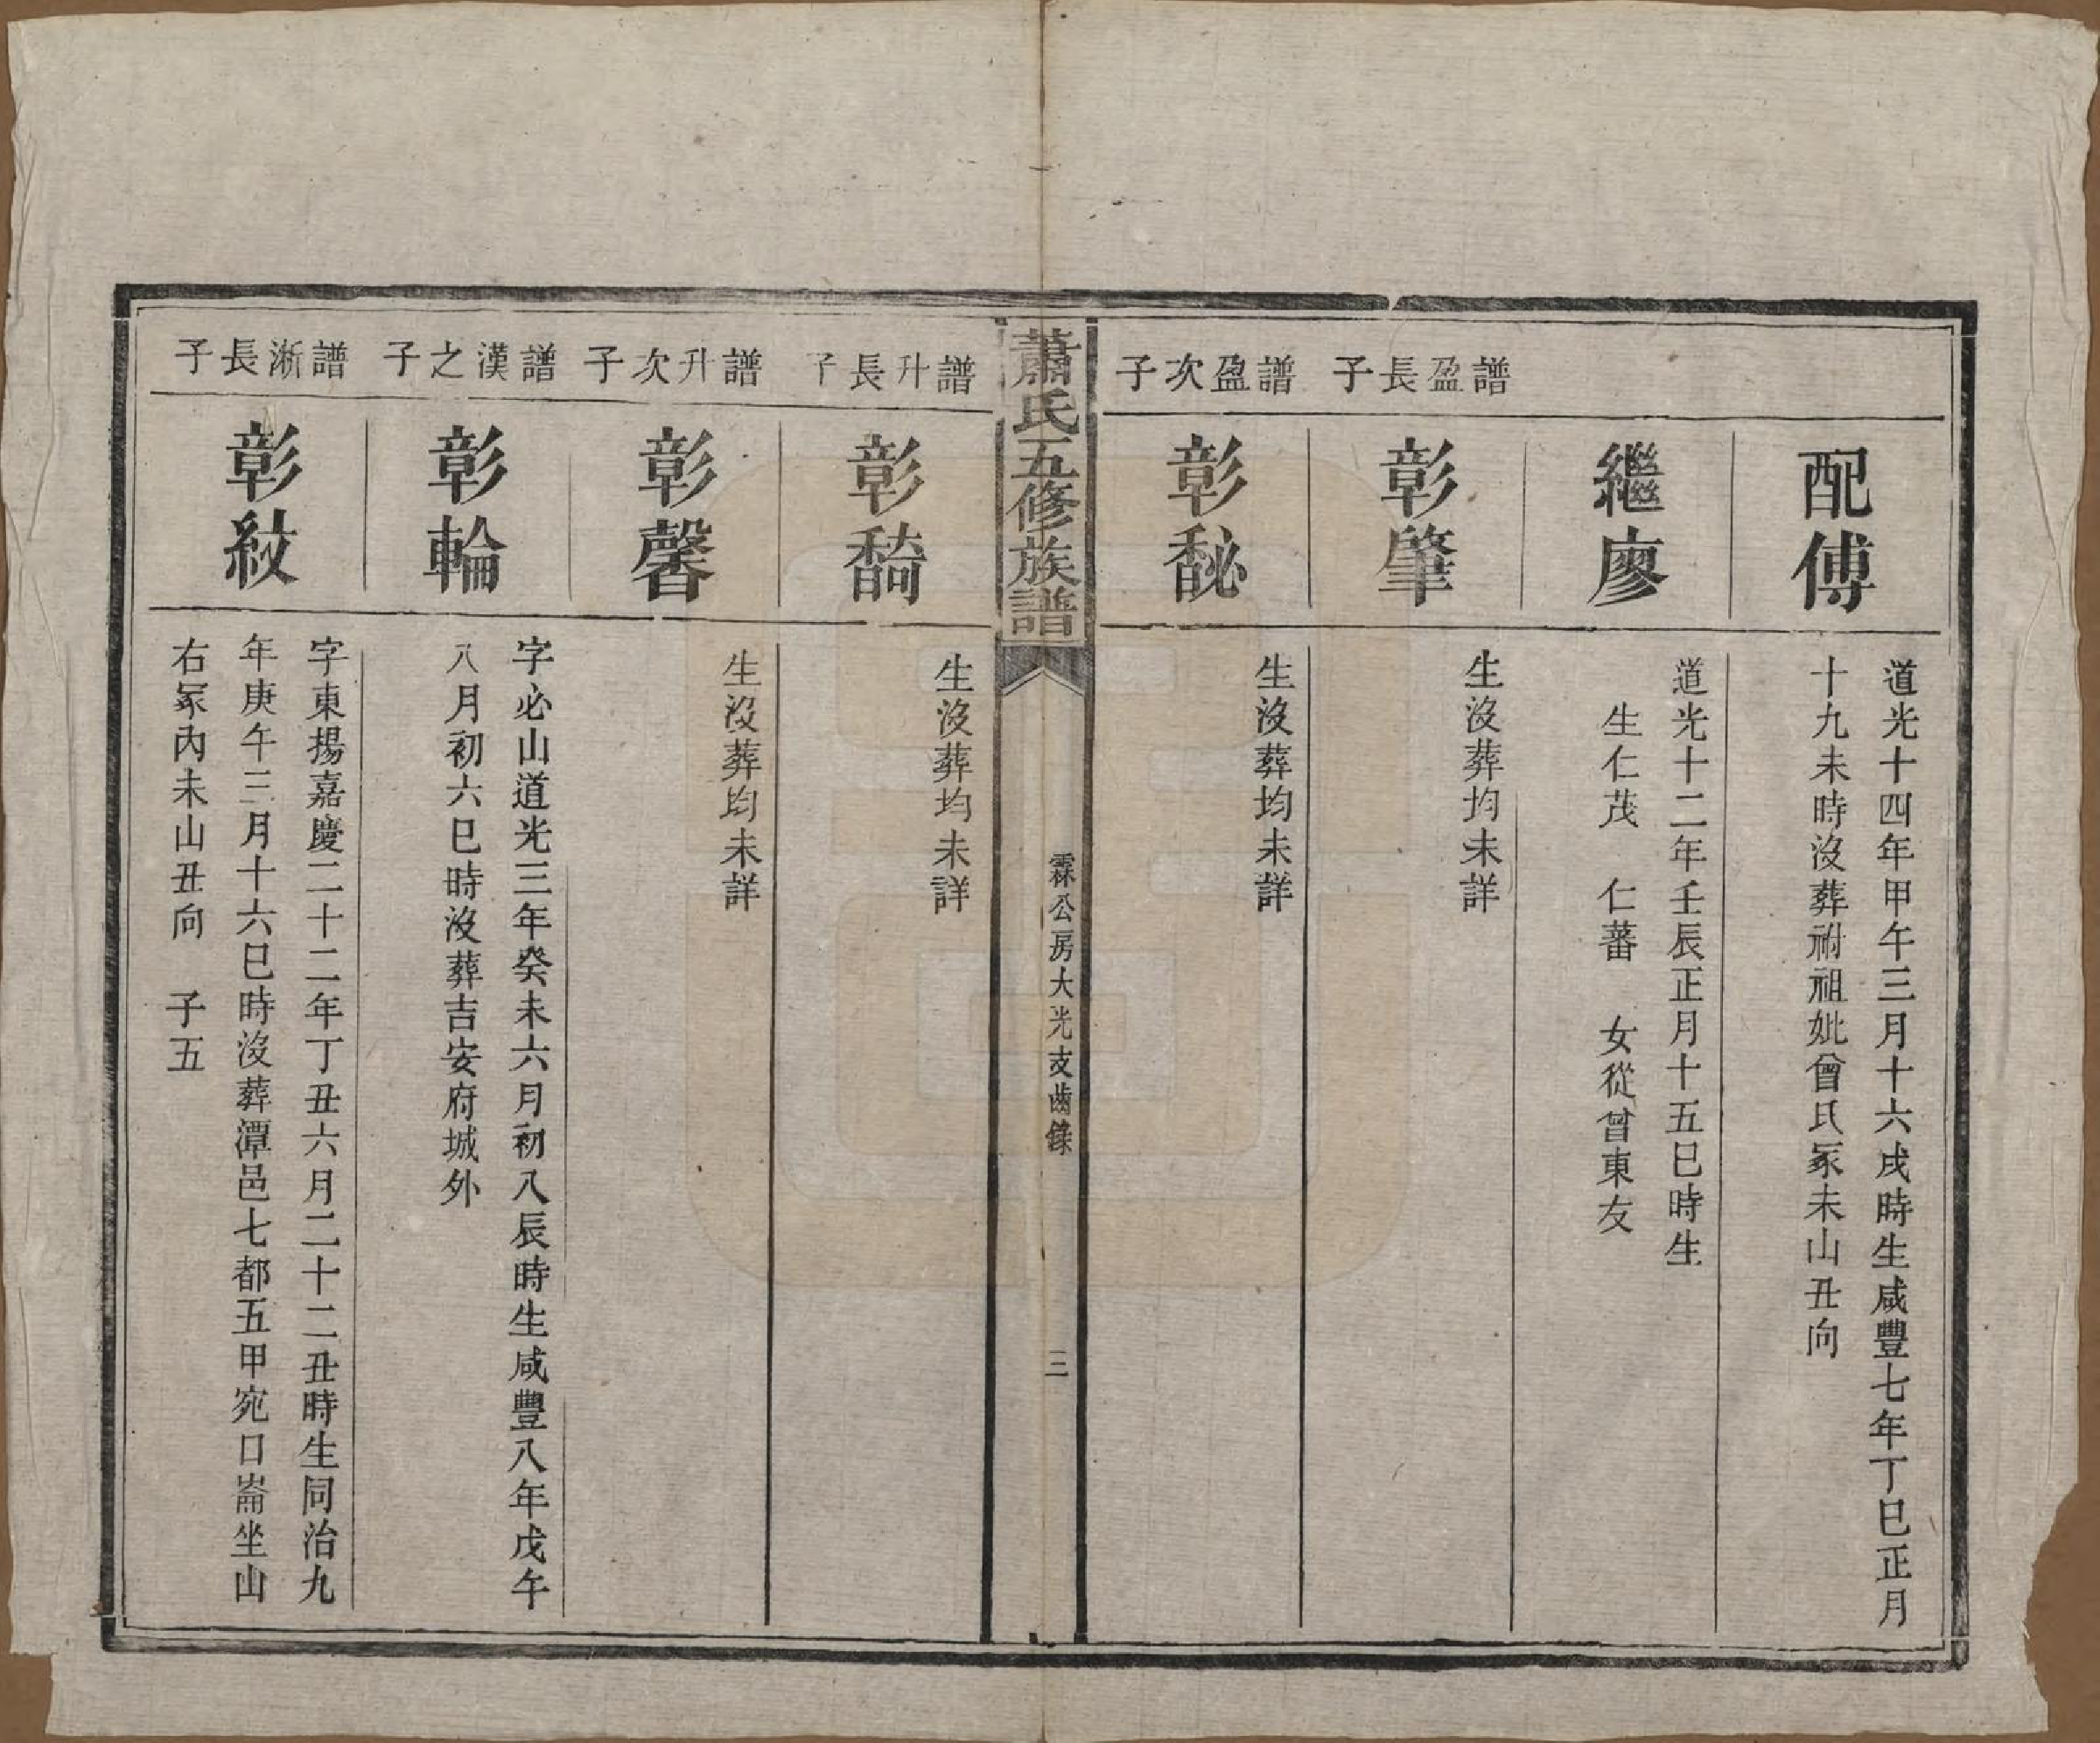 配傅
道光十四年甲午三月十六戌時生咸豐七年丁巳正月
十九未時沒葬祔祖妣曾氏冢未山丑向
繼廖
道光十二年壬辰正月十五巳時生
生仁茂　仁蕃　女從曾東友
譜盈長子
彰肇
生沒葬均未詳
譜盈次子
彰馝
生沒葬均未詳
蕭氏五修族譜
霖公房大光支齒錄
三
譜升長子
彰䭲
生沒葬均未詳
譜升次子
彰馨
生沒葬均未詳
譜漢之子
彰輪
字必山道光三年癸未六月初八辰時生咸豐八年戊午
八月初六巳時沒葬吉安府城外
譜淅長子
彰紋
字東揚嘉慶二十二年丁丑六月二十二丑時生同治九
年庚午三月十六巳時沒葬潭邑七都五甲宛口崙坐山
右冢內未山丑向　子五